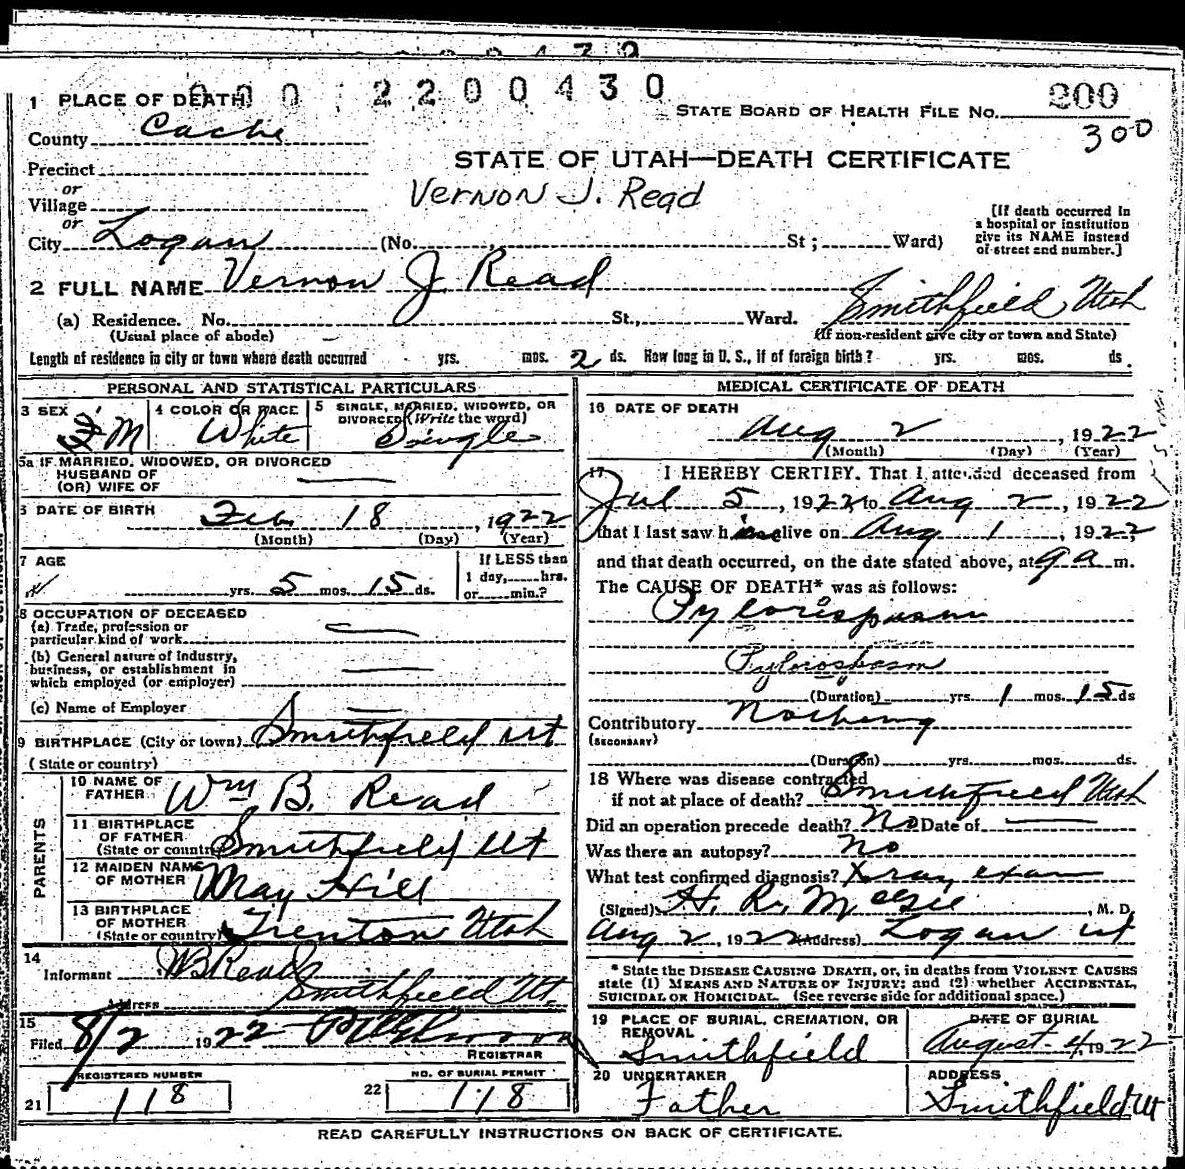 000 2200430
1 PLACE OF DEATH
STATE BOARD OF HEALTH FILE NO. 200
300
County Cache
STATE OF UTAH—DEATH CERTIFICATE
Precinct
or
Vernon J. Read
Village
or
City Logan (No. St; Ward)
[If death occurred in
a hospital or institution
give its NAME instead
of street and number.]
2 FULL NAME Vernon J Read
(a) Residence. No. St., Ward. Smithfield Utah
(Usual place of abode) (If non-resident give city or town and State)
Length of residence in city or town where death occurred yrs. mos. 2 ds. How long in U. S., if of foreign birth? yrs. mos. ds.
PERSONAL AND STATISTICAL PARTICULARS
3 SEX M
4 COLOR OR RACE White
5 SINGLE, MARRIED, WIDOWED, OR
DIVORCED (Write the word)
Single
5a IF MARRIED, WIDOWED, OR DIVORCED
HUSBAND OF
(OR) WIFE OF
6 DATE OF BIRTH Feb 18, 1922
(Month) (Day) (Year)
7 AGE
yrs. 5 mos. 15 ds.
If LESS than
1 day, hrs.
or min.?
8 OCCUPATION OF DECEASED
(a) Trade, profession or
particular kind of work
(b) General nature of industry,
business, or establishment in
which employed (or employer)
(c) Name of Employer
9 BIRTHPLACE (City or town) Smithfield Ut
(State or country)
PARENTS
10 NAME OF
FATHER Wm B. Read
11 BIRTHPLACE
OF FATHER
(State or country) Smithfield Ut
12 MAIDEN NAME
OF MOTHER May Hill
13 BIRTHPLACE
OF MOTHER
(State or country) Trenton Utah
14
Informant W B Read
Address Smithfield Ut.
15
Filed 8/2 1922
REGISTRAR
REGISTERED NUMBER
21 118
NO. OF BURIAL PERMIT
22 118
MEDICAL CERTIFICATE OF DEATH
16 DATE OF DEATH
Aug 2, 1922
(Month) (Day) (Year)
17 I HEREBY CERTIFY. That I attended deceased from
Jul 5, 1922, to Aug 2, 1922
that I last saw him alive on Aug 1, 1922,
and that death occurred, on the date stated above, at 9 a m.
The CAUSE OF DEATH* was as follows:
Pylorispasm
Pylorospasm
(Duration) yrs. 1 mos. 15 ds
Contributory Nothing
(SECONDARY)
(Duration) yrs. mos. ds.
18 Where was disease contracted
if not at place of death? Smithfield Utah
Did an operation precede death? No Date of
Was there an autopsy? No
What test confirmed diagnosis? Xray exam
(Signed) H. R. McGee, M. D.
Aug 2, 1922 (Address) Logan Ut
* State the DISEASE CAUSING DEATH, or, in deaths from VIOLENT CAUSES
state (1) MEANS AND NATURE OF INJURY; and (2) whether ACCIDENTAL,
SUICIDAL OR HOMICIDAL. (See reverse side for additional space.)
19 PLACE OF BURIAL, CREMATION, OR
REMOVAL
Smithfield
DATE OF BURIAL
August 4, 1922
20 UNDERTAKER
Father
ADDRESS
Smithfield Ut
READ CAREFULLY INSTRUCTIONS ON BACK OF CERTIFICATE.